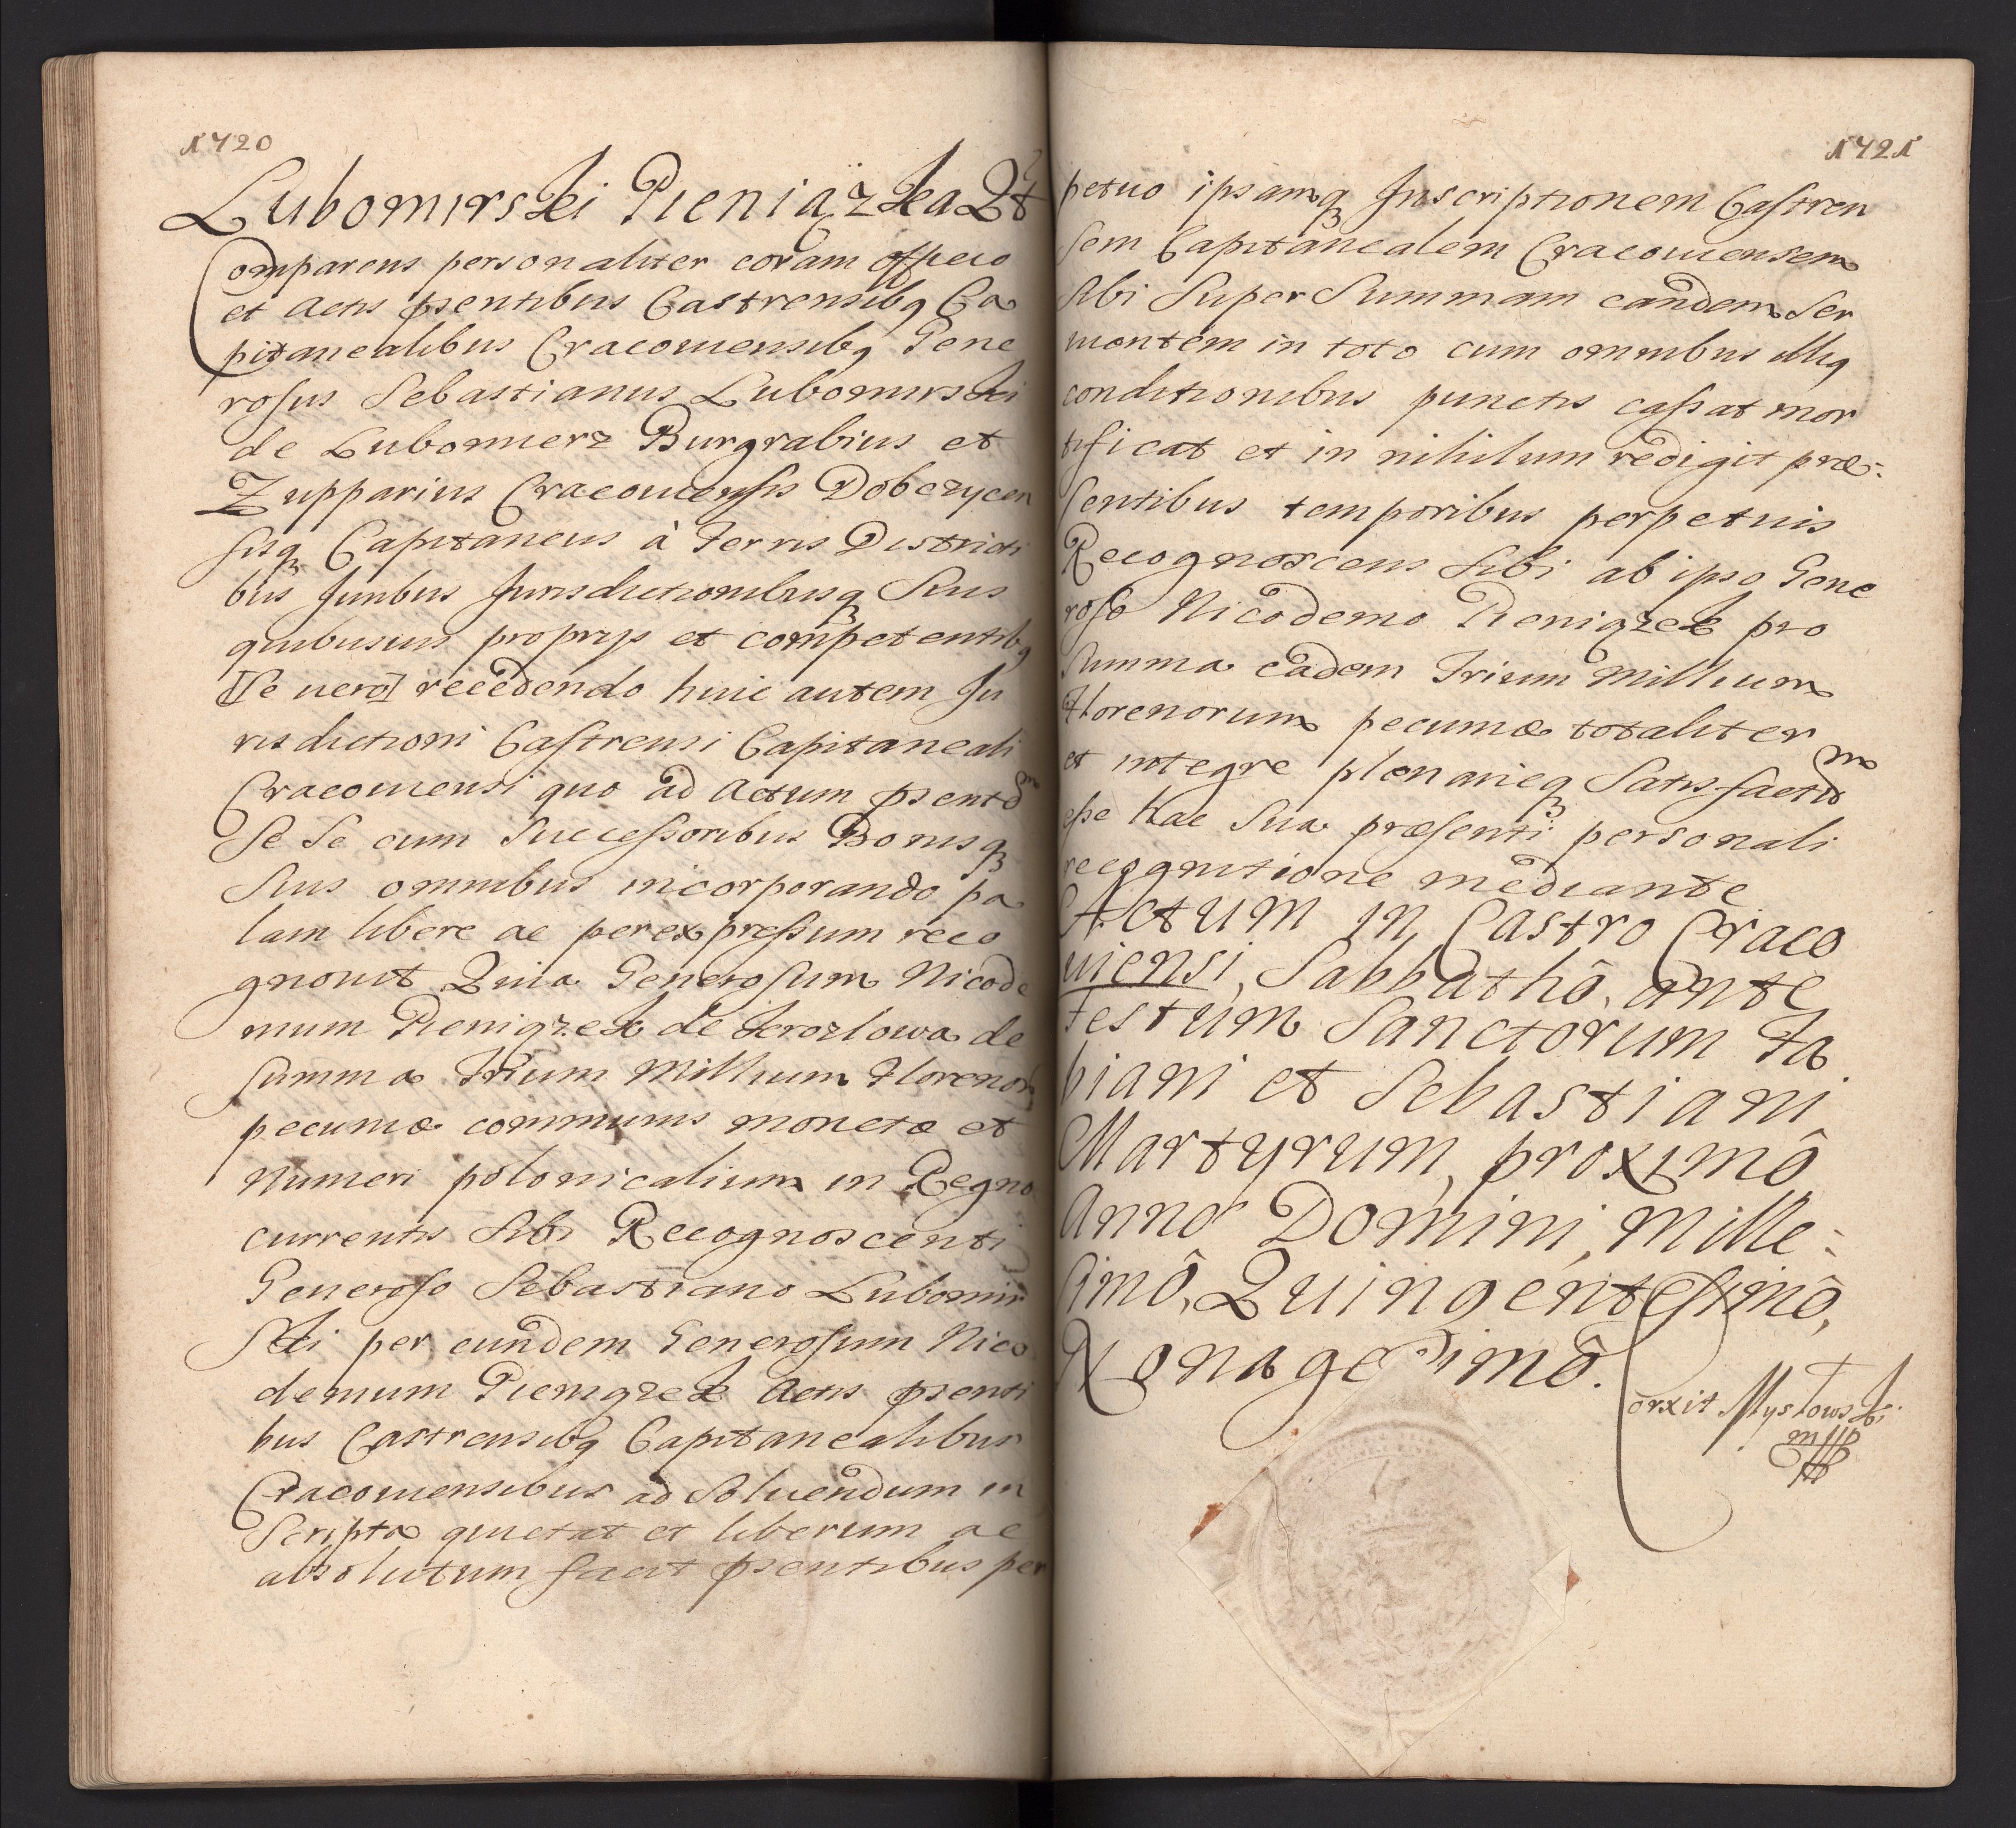 1420
Lubomirski Pieniązka Qt
Comparens personaliter coram offcio
et Actis psentibus Castrensibq Ca
pitanealibus Cracouiensibq Gene
rosus Sebastianus Lubomirski
de Lubomierz Burgrabius et
Zupparius Cracouiensis Dobczycen
sisq Capitaneus à Terris Districti
bus Juribus Jurisdictionibusq Suis
quibusuis proprijs et competentibq
[Se uero] recedendo huic autem Ju
risdictioni Castrensi Capitaneali
Cracouiensi quo ad Actum psentem
Se Se cum Successoribus Bonisq
Suis omnibus incorporando pa
lam libere ac per expressum reco
gnouit Quia Generosum Nicode
mum Pieniązek de Krozlowa de
Summa Trium Millium Florenor
pecuniæ communis monetæ et
Numeri polonicalium in Regno
currentis Sibi Recognoscenti
Generoso Sebastiano Lubomir
Ski per eundem Generosum Nico
demum Pieniązek Actis psenti
bus Castrensibq Capitanealibus
Cracouiensibus ad Soluendum in
Scripta quietat et liberum ac
absolutum facit psentibus per
1421
petuo ipsamq Inscriptionem Castren
sem Capitanealem Cracouiensem
Sibi Super Summam eandem Ser
uientem in toto cum omnibus illiq
conditionibus punctis cassat mor
tificat et in nihilum redigit præ-:
sentibus temporibus perpetuis
Recognoscens Sibi ab ipso Gene
roso Nicodemo Pieniązek pro
Summa eadem Trium Millium
Florenorum pecuniæ totaliter
et integre plenarieq Satisfactum
esse hac Sua præsenti personali
recognitione mediante
Actum in Castro Craco
uiensi, Sabbathô, ante
Festum Sanctorum Fa
biani et Sebastiani
Martyrum, proximô
Anno Domini, Mille-:
simô, Quingentesimô,
Nonagesimô.
Corxit Mysłowski
mpp